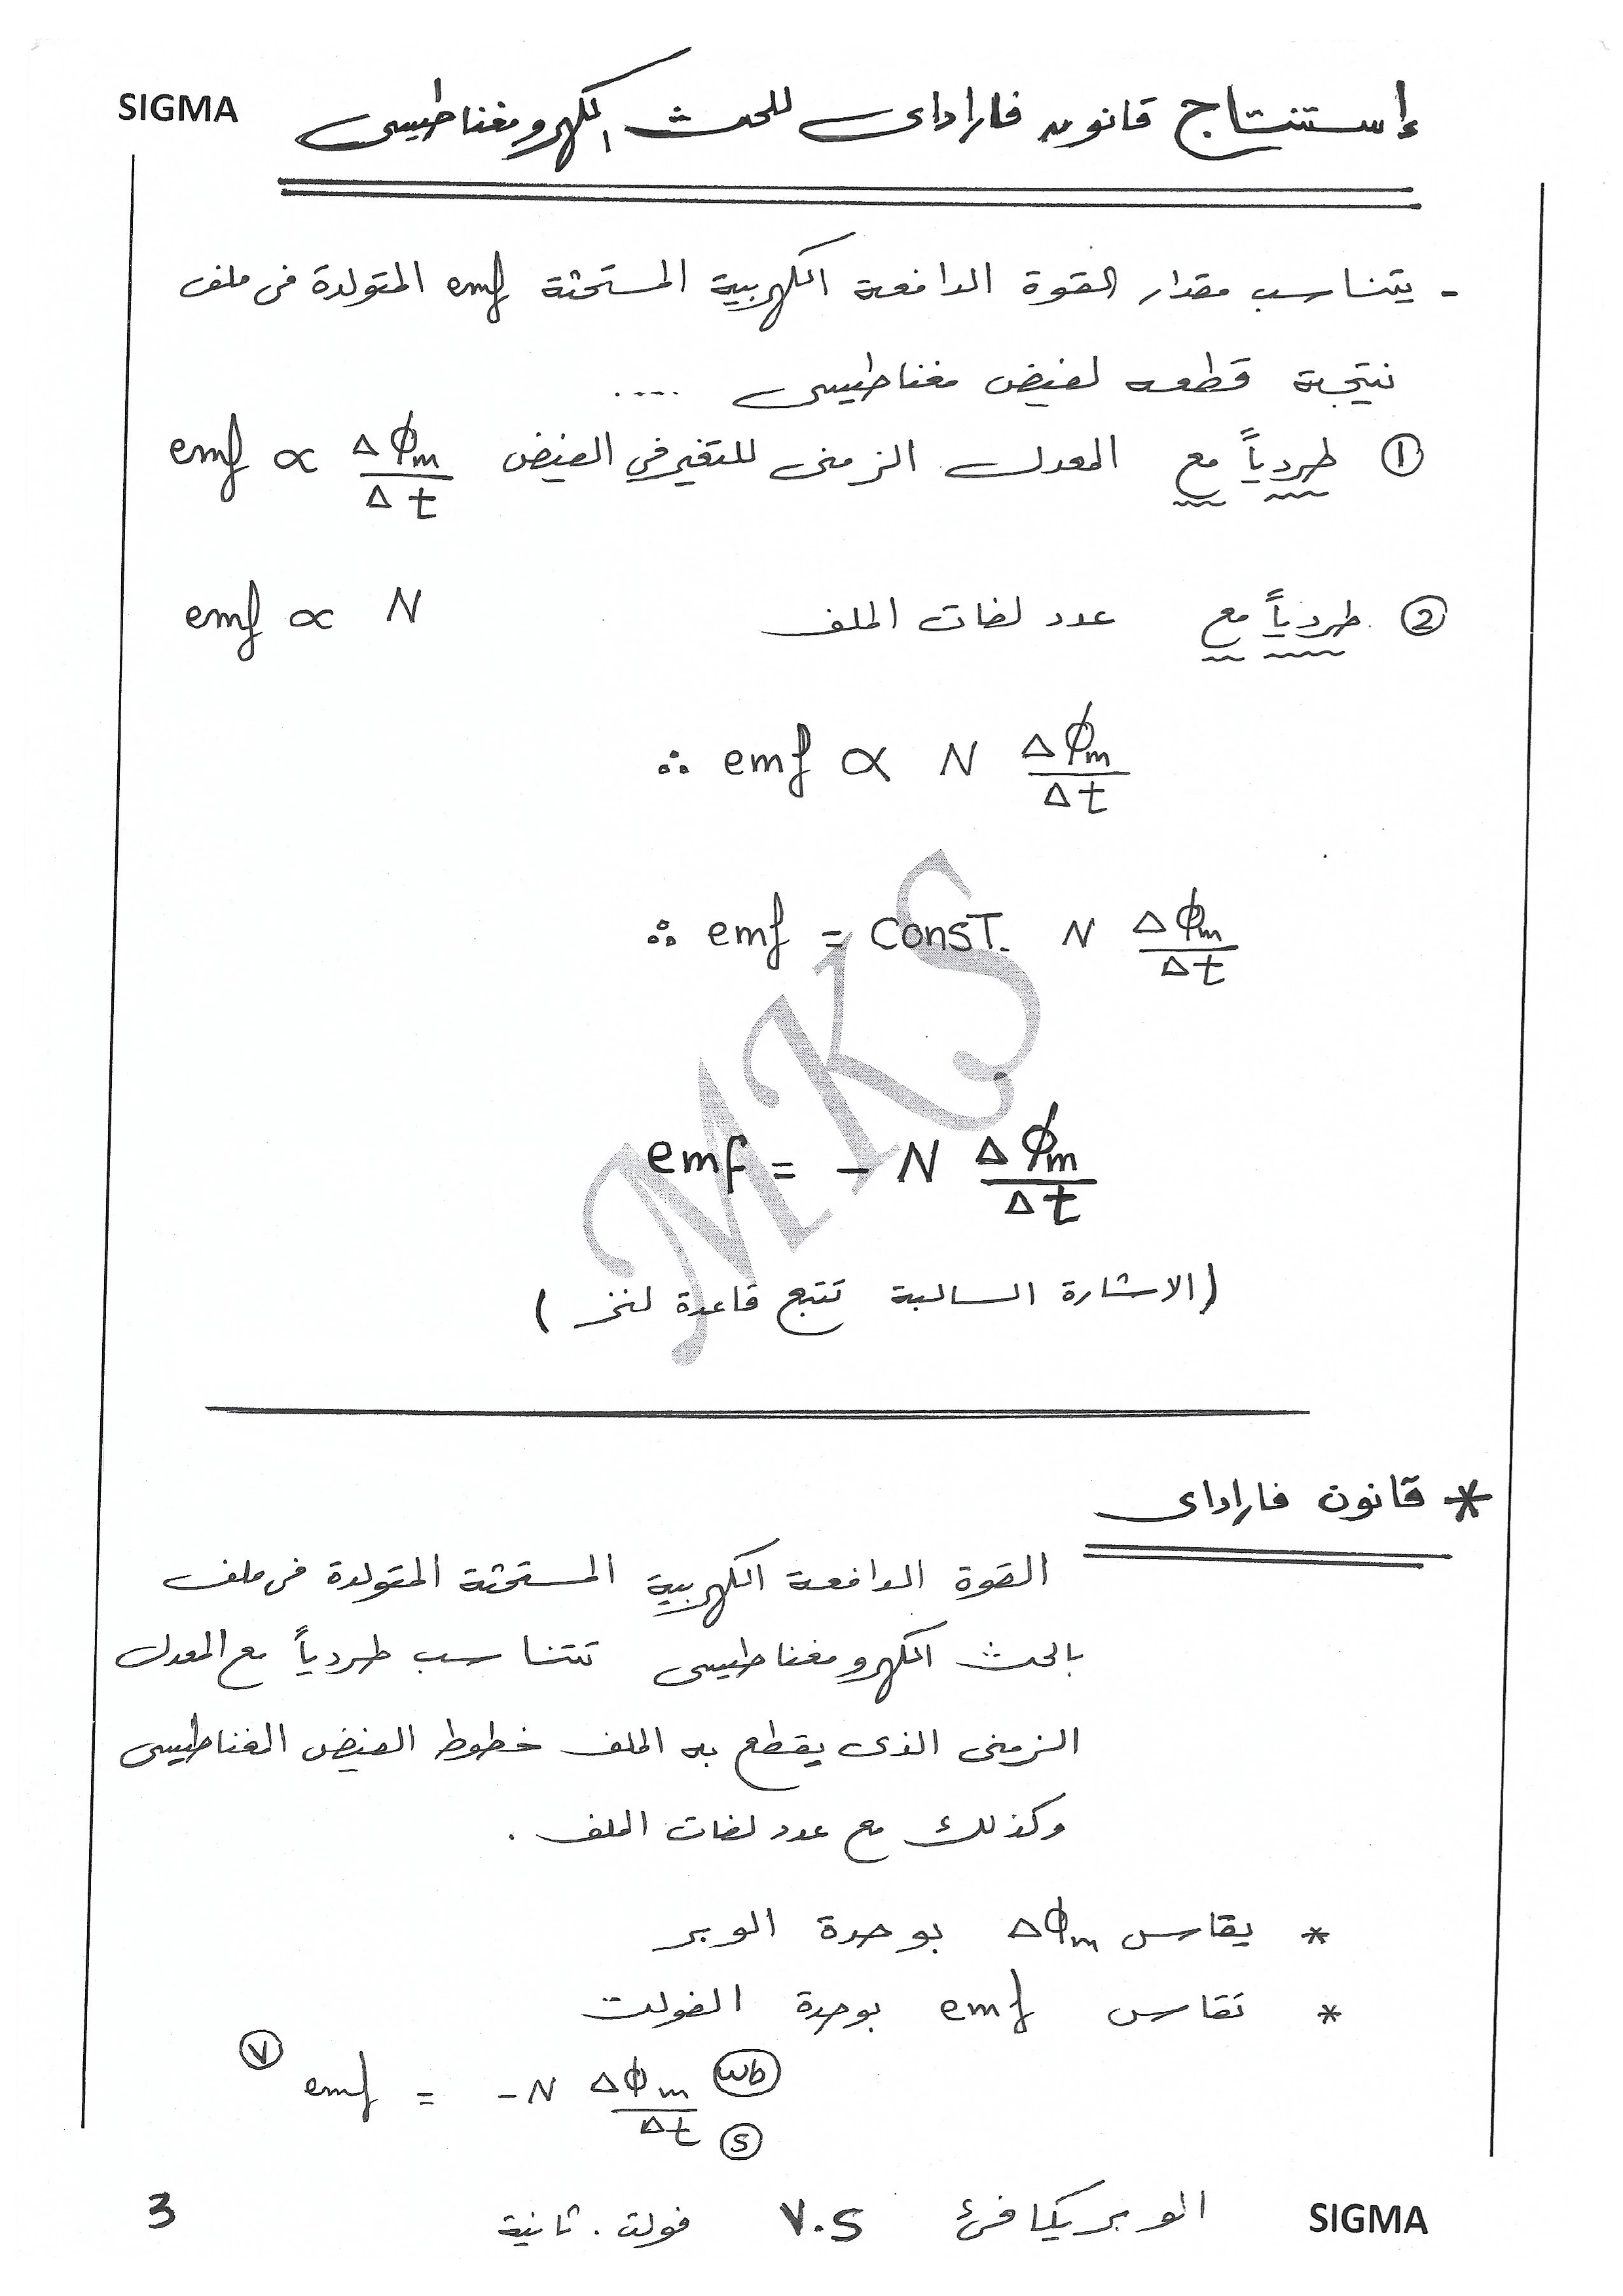 SIGMA
إستنتاج قانون فاراداى للحث الكهرومغناطيسى
- يتناسب مقدار القوة الدافعة الكهربية المستحثة emf المتولدة فى ملف
نتيجة قطعه لفيض مغناطيسى ....
① طردياً مع المعدل الزمنى للتغير في الفيض emf ∝ Δϕm / Δt
② طردياً مع عدد لفات الملف emf ∝ N
∴ emf ∝ N Δϕm / Δt
∴ emf = const. N Δϕm / Δt
MKS
emf = - N Δϕm / Δt
(الاشارة السالبة تتبع قاعدة لنز)
* قانون فاراداى
القوة الدافعة الكهربية المستحثة المتولدة فى ملف
بالحث الكهرومغناطيسى تتناسب طردياً مع المعدل
الزمنى الذى يقطع به الملف خطوط الفيض المغناطيسى
وكذلك مع عدد لفات الملف .
* يقاس Δϕm بوحدة الوبر
* تقاس emf بوحدة الفولت
Ⓥ emf = -N Δϕm (wb) / Δt Ⓢ
الوبر يكافئ V.S فولت . ثانية
SIGMA
3